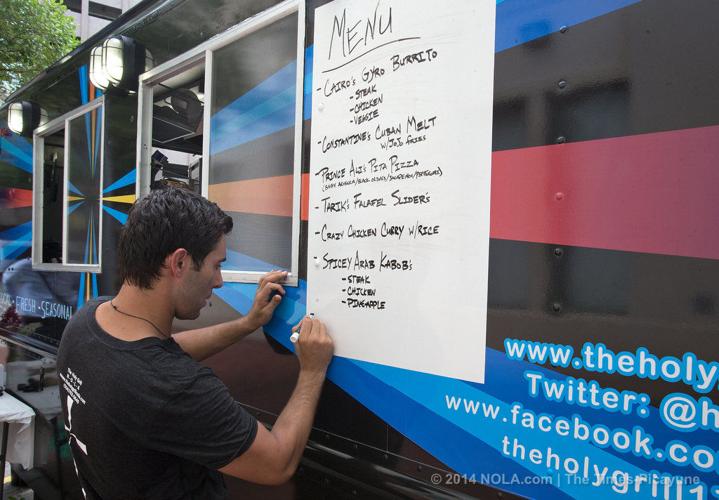 MENU
- CAIRO'S GYRO BURRITO
- STEAK
- CHICKEN
- VEGGIE
- CONSTANTINE'S CUBAN MELT
W/JOJO FRIES
- PRINCE ALI'S PITA PIZZA
- TARIK'S FALAFEL SLIDER'S
- CRAZY CHICKEN CURRY W/RICE
- SPICEY ARAB KABOB'S
- STEAK
- CHICKEN
- PINEAPPLE
FRESH · SEASONAL
www.theholy
Twitter: @h
www.facebook.co
theholygrill1
© 2014 NOLA.com | The Times-Picayune